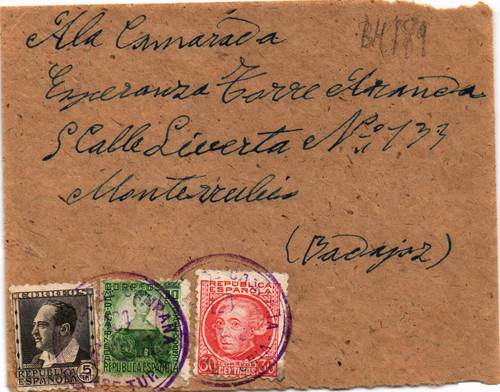 A la Camarada
BH 889
Esperanza Torre Aranda
S Calle Liverta Nº 133
Monterrubio
(Badajoz)
CORREOS
5
REPUBLICA
ESPAÑOLA
10
REPUBLICA ESPAÑOLA
REPUBLICA
ESPAÑOLA
30 CENTIMOS 30